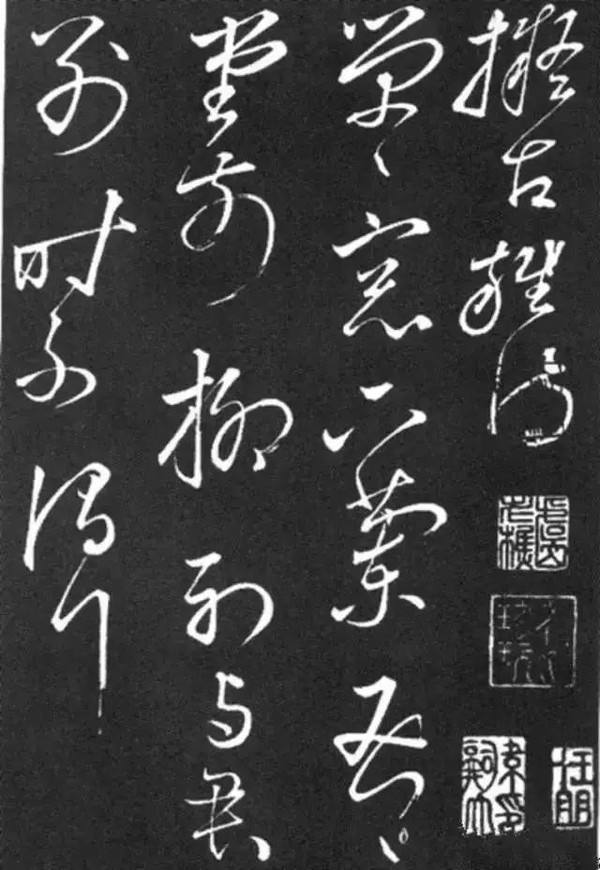 擬古雜詩
榮〻窓下蘭密〻
堂前柳初与君
別時不謂行